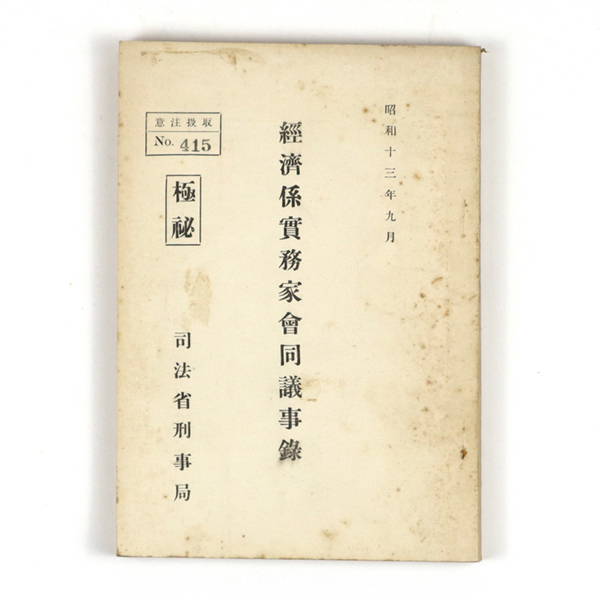 昭和十三年九月
經濟係實務家會同議事錄
意注扱取
No. 415
極祕
司法省刑事局